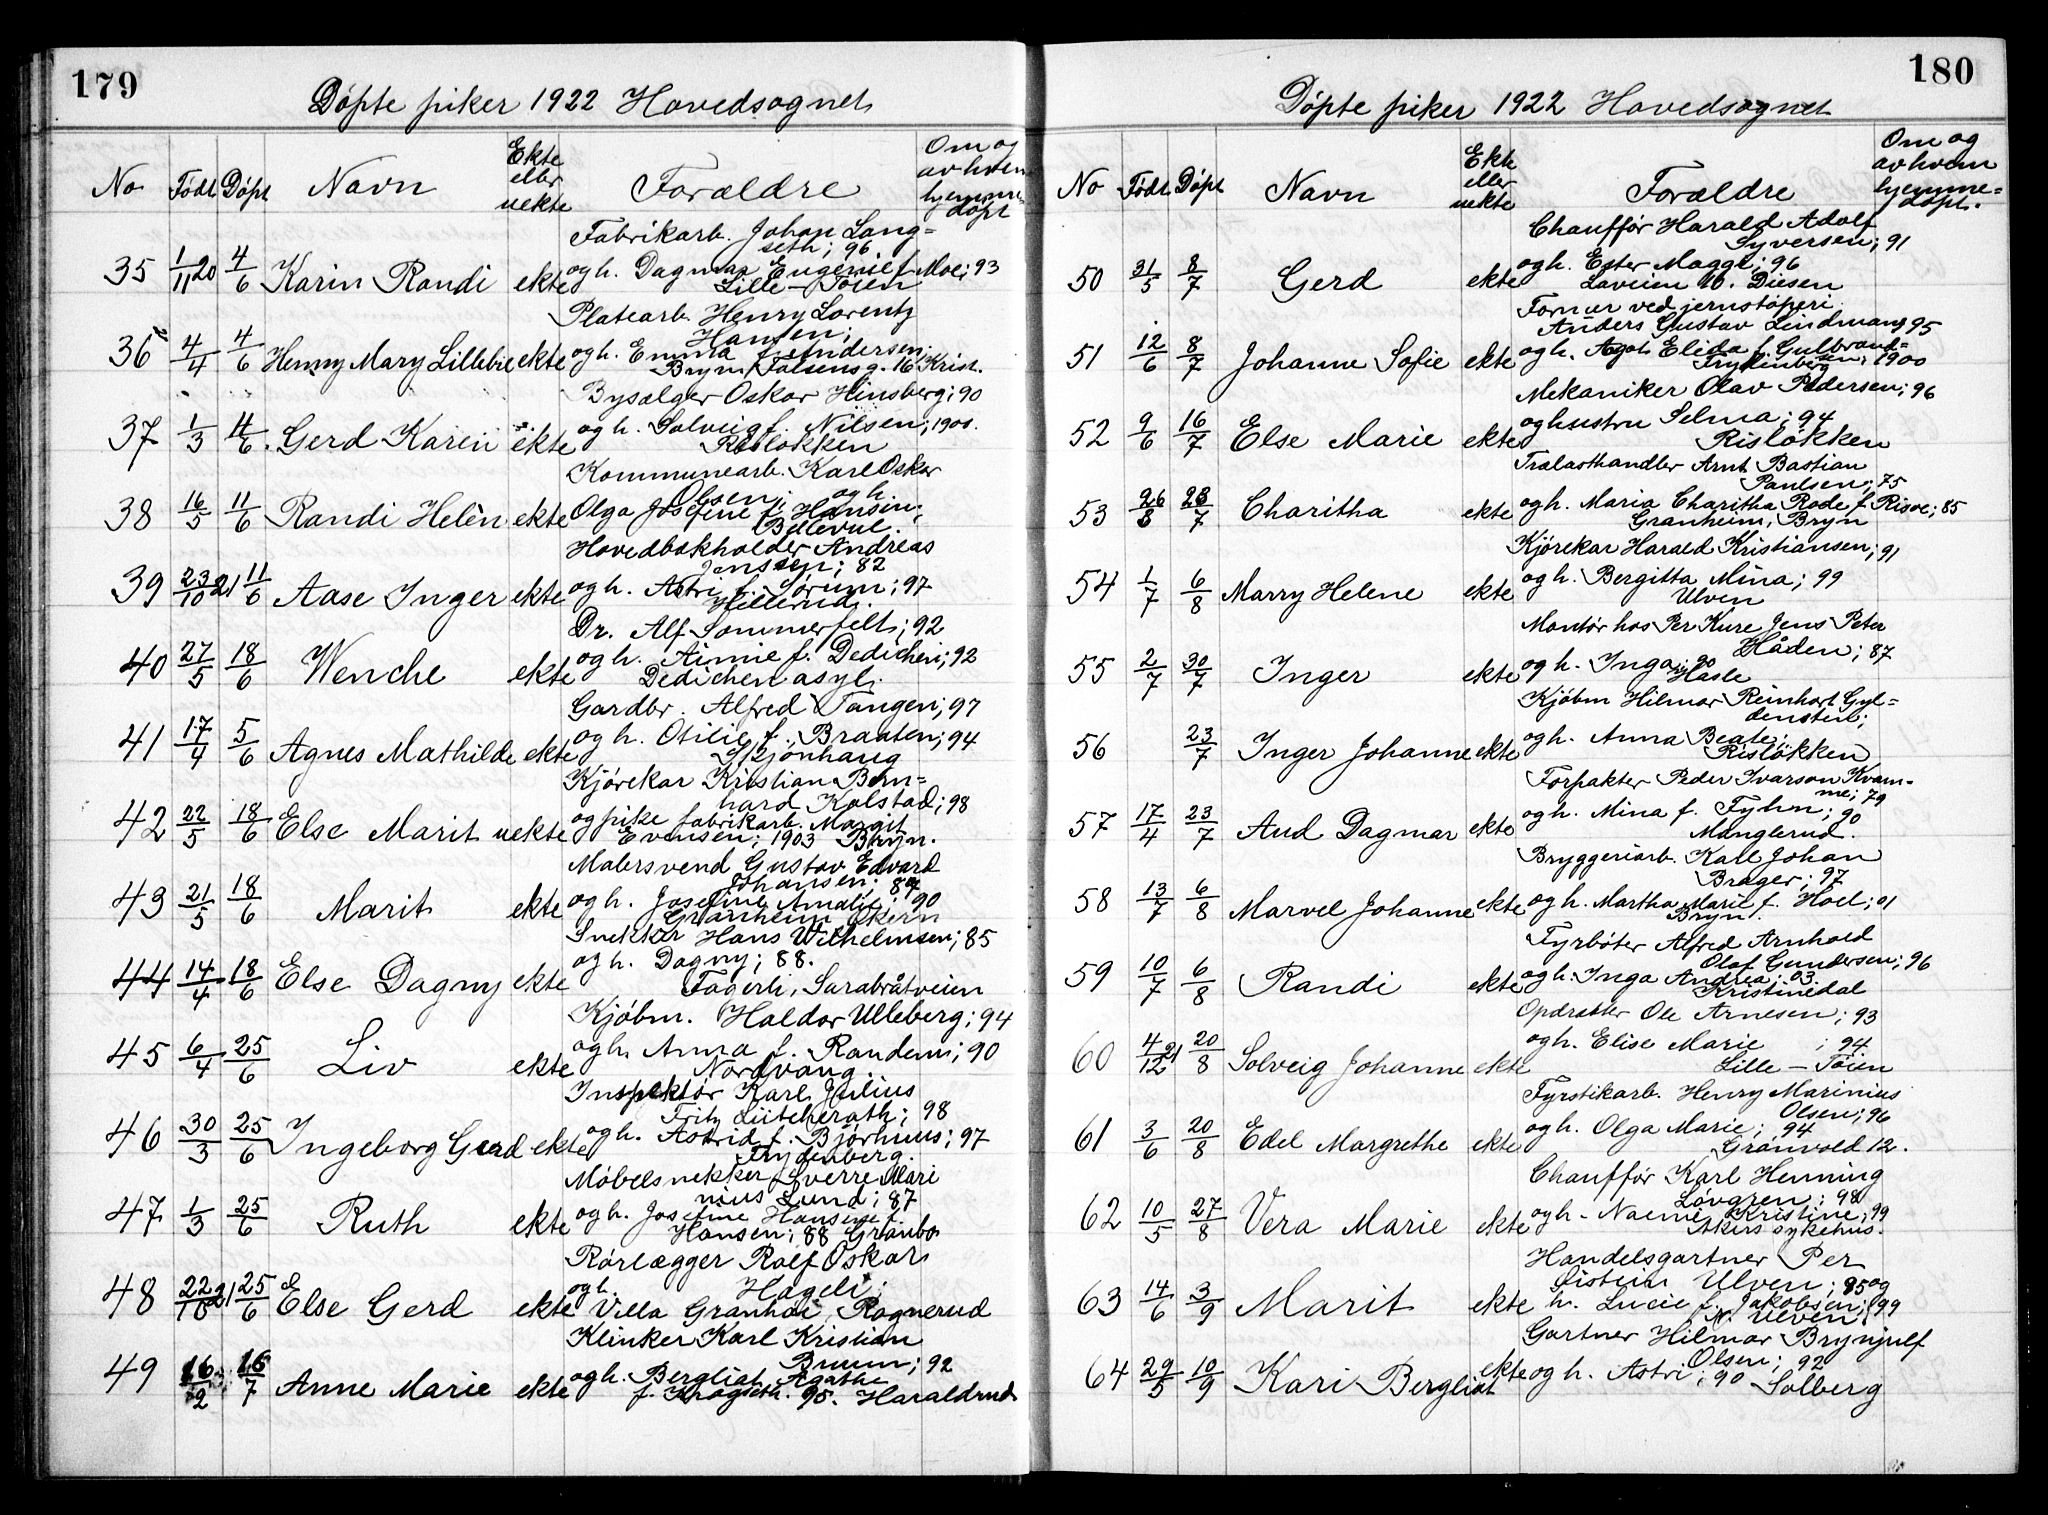 179
Döpte piker 1922 Hovedsognet
No Födt Döpt Navn Ekte eller uekte Forældre Om og av hvem hjemmedöpt
Fabrikarb. Johan Lang=
seth; 96
35 1/11 20 4/6 Karin Randi ekte og h. Dagmar Eugenie f. Moe; 93
Lille-Töien
Platearb. Henry Lorentz
Hansen;
36 4/4 4/6 Henny Mary Lillebie ekte og h. Emma f. Andersen;
Bryn Falsensg. 16 Krist.
Bysælger Oskar Hinsberg; 90
37 1/3 4/6 Gerd Karin ekte og h. Solveig f. Nilsen; 1900.
Rislökken
Kommunearb. Karl Oskar
Olsen; og h.
38 16/5 11/6 Randi Helèn ekte Olga Josefine f. Hansen;
Bellevue.
Hovedbokholder Andreas
Janssen; 82
39 23/10 21 11/6 Aase Inger ekte og h. Astri f. Sörum; 97
Hellerud.
Dr. Alf Sommerfelt; 92
40 27/5 18/6 Wenche ekte og h. Aimie f. Dedichen; 92
Dedichen asyl.
Gardbr. Alfred Tangen; 97
41 17/4 5/6 Agnes Mathilde ekte og h. Otilie f. Braaten; 94
Bjönhaug
Kjörekar Kristian Bern=
hard Kolstad; 98
42 22/5 18/6 Else Marit uekte og pike fabrikarb. Margit
Evensen; 1903 Bryn.
Malersvend Gustav Edvard
Johansen; 87
43 21/5 18/6 Marit ekte og h. Josefine Amalie; 90
Granheim Økern
Snekker Hans Wilhelmsen; 85
44 14/4 18/6 Else Dagny ekte og h. Dagny; 88.
Fagerli, Sarabråtveien
Kjöbm. Haldor Ulleberg; 94
45 6/4 25/6 Liv ekte og h. Anna f. Randem; 90
Nordvang.
Inspektör Karl Julius
Fritz Lütcherath; 98
46 30/3 25/6 Ingeborg Gerd ekte og h. Astrid f. Björhuus; 97
Frydenberg.
Möbelsnekker Sverre Mari
nius Lund; 87
47 1/3 25/6 Ruth ekte og h. Josefine Hansine f.
Hansen; 88 Granbo
Rörlægger Rolf Oskar
48 22/10 21 25/6 Else Gerd ekte og h. Hageli;
Villa Granhoi Rognerud
Klinker Karl Kristian
Bruun; 92
49 16/2 16/7 Anne Marie ekte og h. Bergliot Agathe
f. Krogseth. 95. Haraldrud
180
Döpte piker 1922 Hovedsognet
No Födt Döpt Navn Ekte eller uekte Forældre Om og av hvem hjemme=döpt.
Chaufför Harald Adolf
Syversen; 91
50 31/5 8/7 Gerd ekte og h. Ester Maggi; 96
Laveien 10. Diesen
Former ved jernstöperi
Anders Gustav Lindmann; 95
51 12/6 8/7 Johanne Sofie ekte og h. Agot Elida f. Gulbrand=
sen; 1900
Frydenberg
Mekaniker Olav Pedersen; 96
52 9/6 16/7 Else Marie ekte og hustru Selma; 94
Rislökken
Trælasthandler Arnt Bastian
Paulsen; 75
53 26/3 23/7 Charitha ekte og h. Maria Charitha Rode f. Risoe; 85
Granheim, Bryn
Kjörekar Harald Kristiansen; 91
54 1/7 6/8 Marry Helene ekte og h. Bergitta Mina; 99
Ulven
Montör hos Per Kure Jens Peter
Håden; 87
55 2/7 30/7 Inger ekte og h. Inga; 90
Hasle
Kjöbm Hilmar Reinhart Gyl=
densten;
56 23/7 Inger Johanne ekte og h. Anna Beate;
Rislökken
Forpakter Peder Ivarson Kvam=
me; 79
57 17/4 23/7 Aud Dagmar ekte og h. Mina f. Tyhm; 90
Manglerud.
Bryggeriarb. Karl Johan
Brager; 97
58 13/7 6/8 Marvel Johanne ekte og h. Martha Marie f. Hoel; 01
Bryn.
Fyrböter Alfred Arnhold
Olaf Gundersen; 96
59 10/7 6/8 Randi ekte og h. Inga Andrea; 03.
Kristinedal
Opdrætter Ole Arnesen; 93
60 4/12 21 20/8 Solveig Johanne ekte og h. Elise Marie; 94
Lille-Töien
Fyrstikarb. Henry Marinius
Olsen; 96
61 3/6 20/8 Edel Margrethe ekte og h. Olga Marie; 94
Grönvold 12.
Chaufför Karl Henning
Lövgren; 98
62 10/5 27/8 Vera Marie ekte og h. Naemi Kristine; 99
Akers sykehus.
Handelsgartner Per
Ulven; 85 og
63 14/6 3/9 Marit ekte h. Lucie f. Jakobsen; 99
N. Ulven
Gartner Hilmar Brynjulf
Olsen; 92
64 29/5 10/9 Kari Bergliot ekte og h. Astri; 90 Solberg